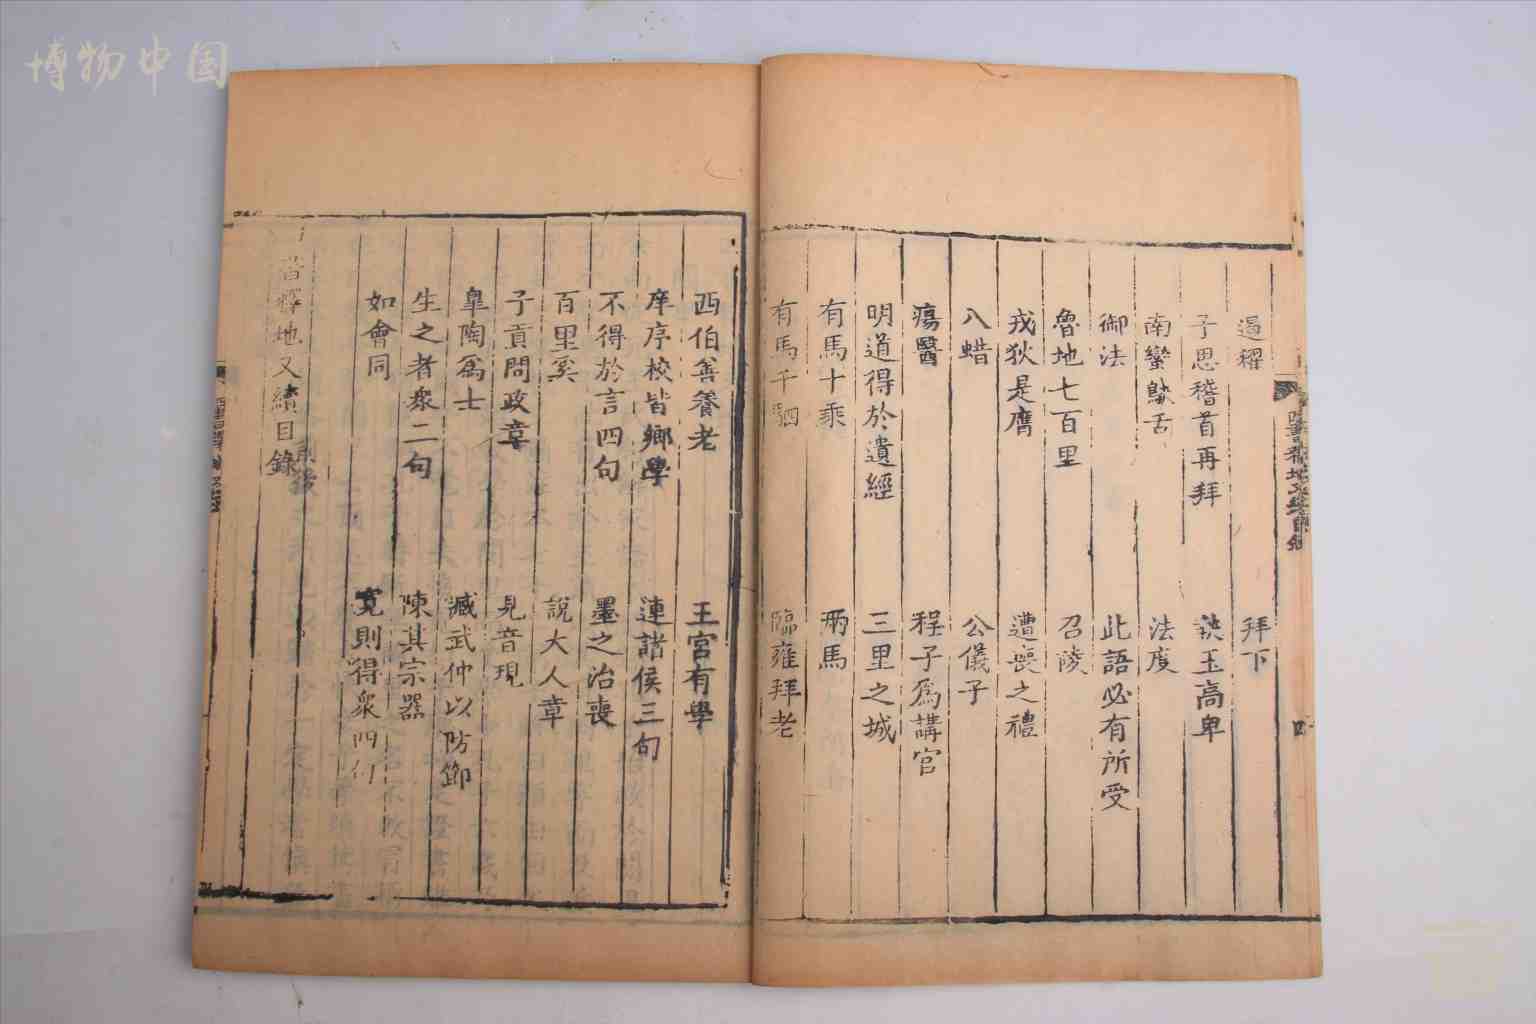 博物中国
遏糴
拜下
子思稽首再拜
執玉高卑
南蠻鴃舌
法度
御法
此語必有所受
魯地七百里
召陵
戎狄是膺
遭喪之禮
八蜡
公儀子
瘍醫
程子爲講官
明道得於遺經
三里之城
有馬十乘
兩馬
有馬千駟
臨雍拜老
四書釋地又續目錄
四
西伯善養老
王宮有學
庠序校皆鄉學
連諸侯三句
不得於言四句
墨之治喪
百里奚
說大人章
子貢問政章
見音現
皐陶爲士
臧武仲以防節
生之者衆二句
陳其宗器
如會同
寬則得衆四句
書釋地又續目錄